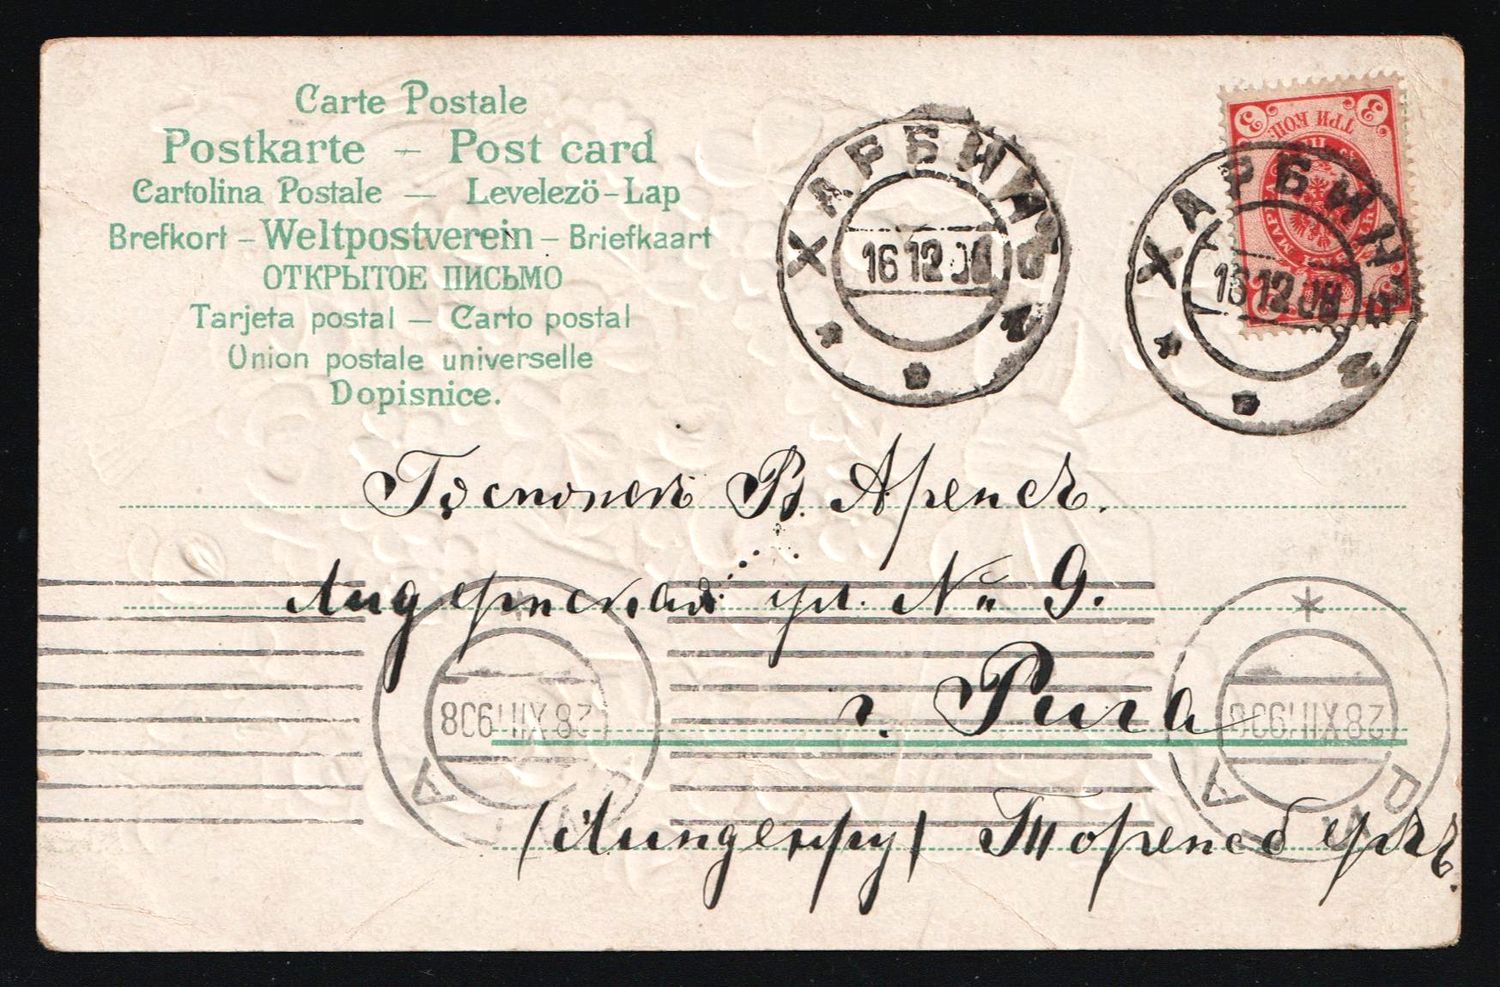 Carte Postale
Postkarte – Post card
Cartolina Postale — Levelezö-Lap
Brefkort – Weltpostverein – Briefkaart
ОТКРЫТОЕ ПИСЬМО
Tarjeta postal — Carto postal
Union postale universelle
Dopisnice.
ХАРБИНЪ
16 12 08
ХАРБИНЪ
16 12 08
ТРИ КОП.
3 3
В. Аренсъ.
ул. № 9.
г. Рига
(Линденру) Торенсбергъ.
28 XII 908
28 XII 908